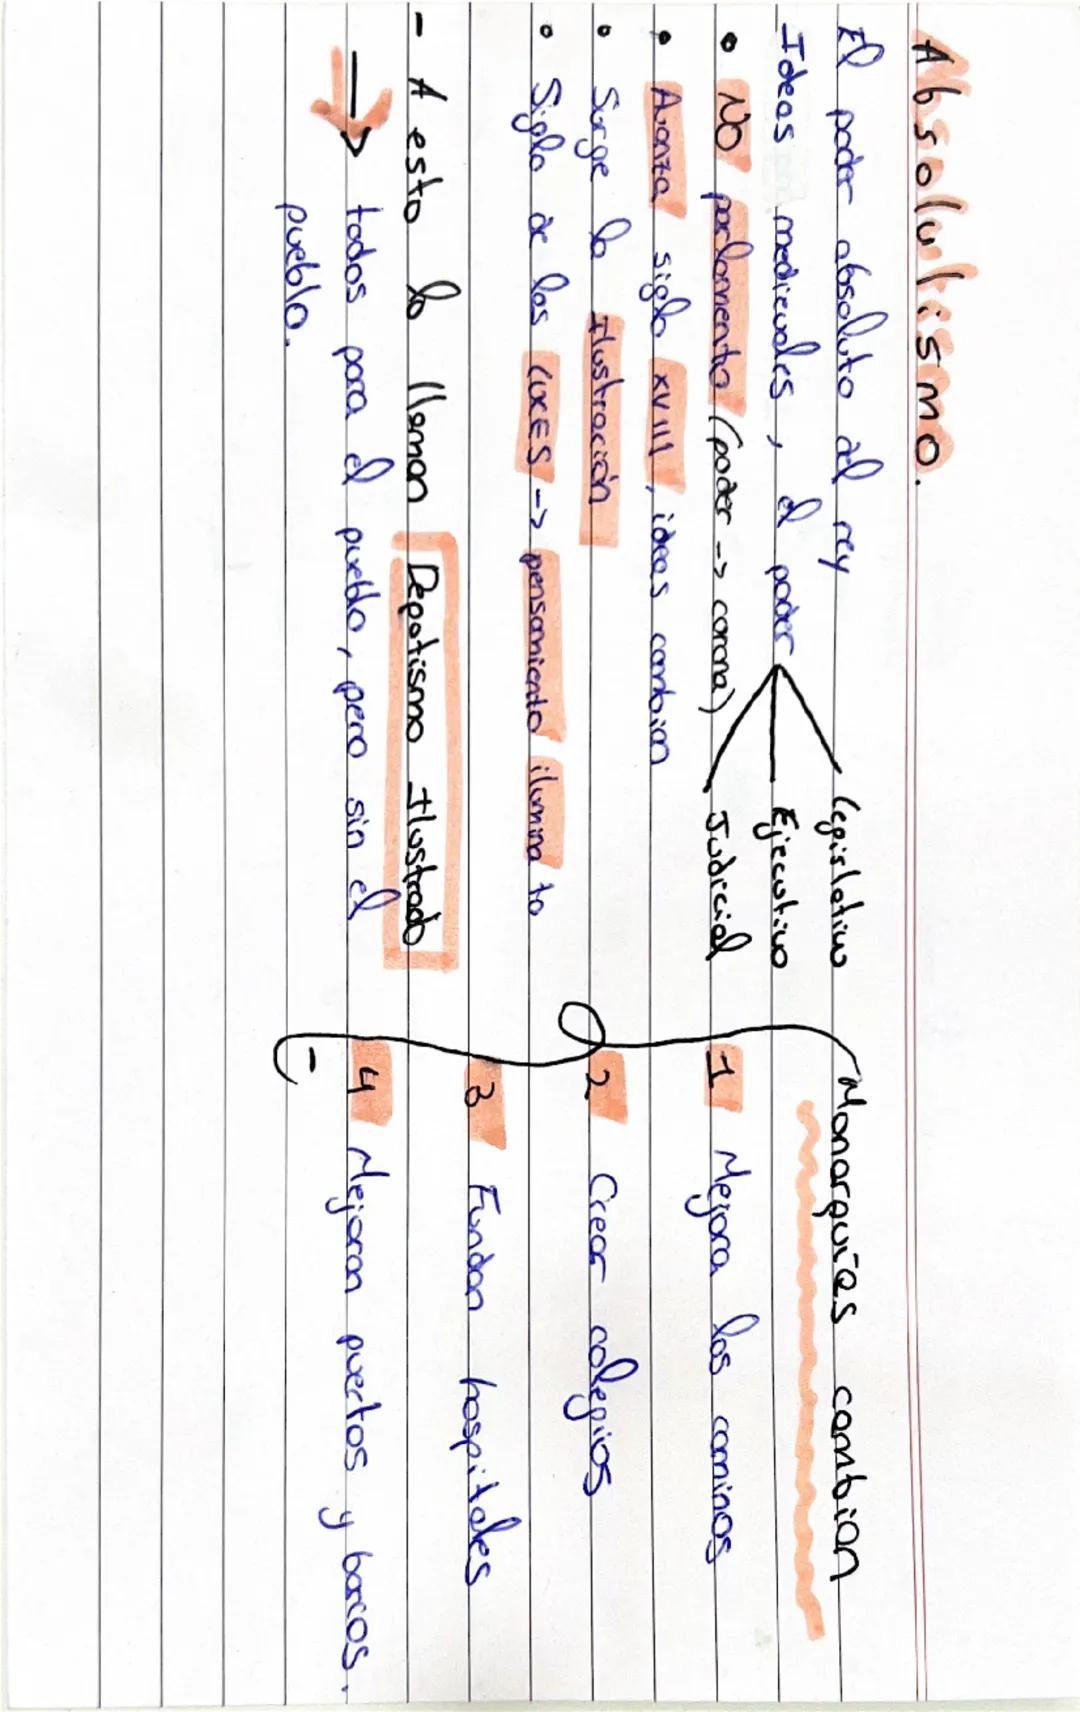 Absolutismo.
El poder absoluto del rey
Ideas medievales, el poder
Legislativo
Ejecutivo
Judicial
• No parlamento (poder -> corona)
• Avanza siglo XVIII, ideas cambian
• Surge la Ilustración
• Siglo de las LUCES -> pensamiento ilumina to
- A esto lo llaman Depotismo Ilustrado
→ todos para el pueblo, pero sin el
pueblo.
Monarquías cambian
1 Mejora los caminos
2 Crear colegios
3 Fundan hospitales
4 Mejoran puertos y barcos.
-